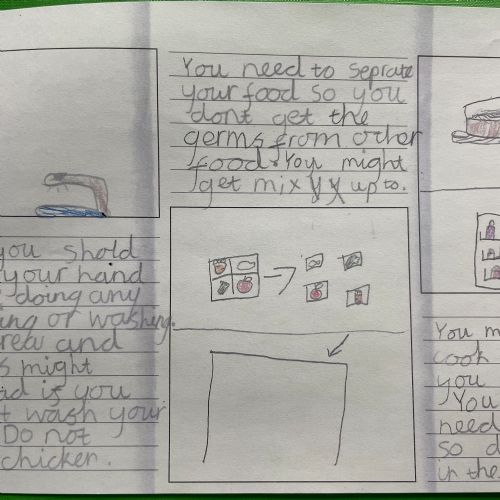 You need to seprate
your food so you
dont get the
germs from other
food. You might
get mix up to.
you shold
your hand
doing any
ing or washing.
and
might
is you
wash your
Do not
chicker.
You m
cook
you
You
need
so d
in the